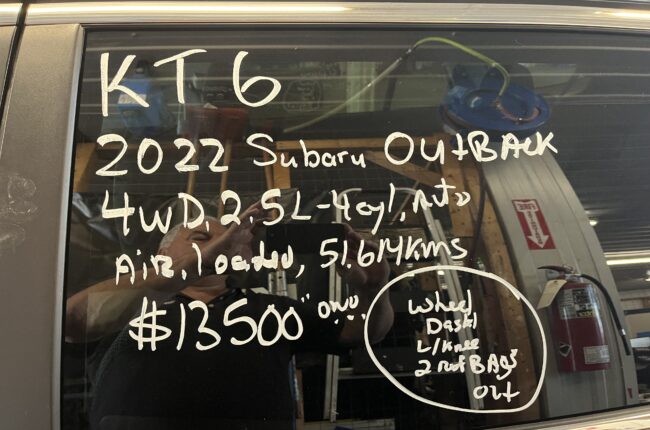 KT6
2022 Subaru OutBACK
4WD, 2.5L-4cyl, Auto
Air, loaded, 51,614Kms
$13500" O.N.O.
Wheel
Dash
L/Knee
2 Roof BAGS
Out
FIRE